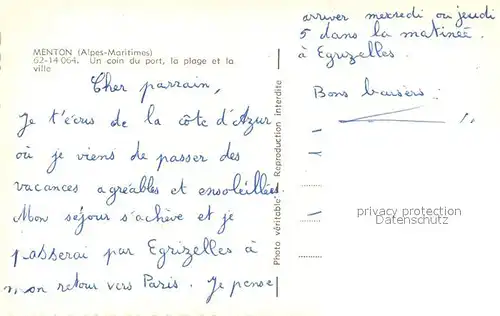 MENTON (Alpes-Maritimes)
62-14 064. Un coin du port, la plage et la
ville
Cher parrain,
Je t'écris de la côte d'Azur
où je viens de passer des
vacances agréables et ensoleillées.
Mon séjour s'achève et je
passerai par Egrizelles à
mon retour vers Paris. Je pense
Photo véritable - Reproduction interdite
arriver mercredi ou jeudi
5 dans la matinée
à Egrizelles.
Bons baisers.
privacy protection
Datenschutz